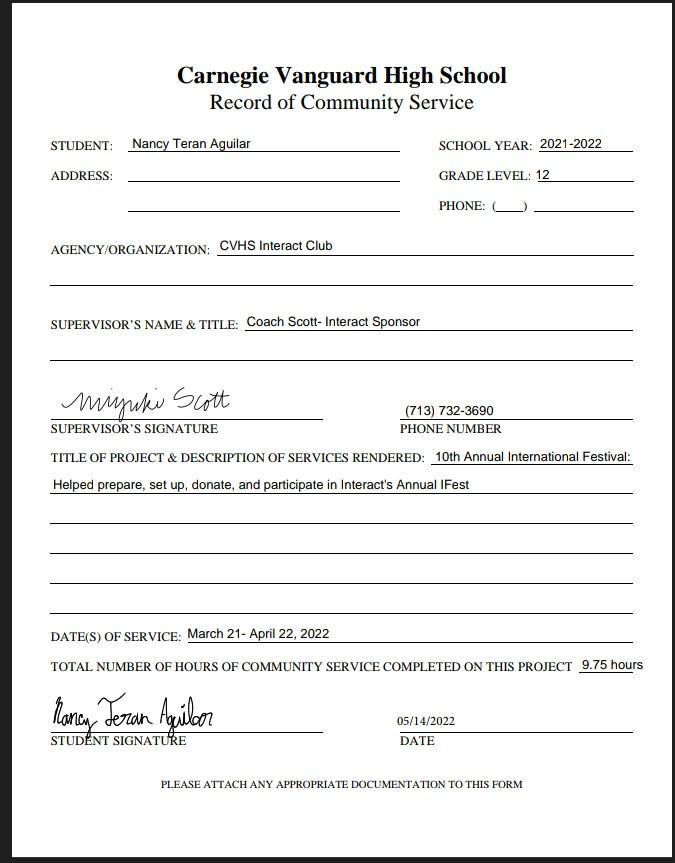 Carnegie Vanguard High School
Record of Community Service
STUDENT: Nancy Teran Aguilar SCHOOL YEAR: 2021-2022
ADDRESS: GRADE LEVEL: 12
PHONE: (___)
AGENCY/ORGANIZATION: CVHS Interact Club
SUPERVISOR'S NAME & TITLE: Coach Scott- Interact Sponsor
Miyuki Scott (713) 732-3690
SUPERVISOR'S SIGNATURE PHONE NUMBER
TITLE OF PROJECT & DESCRIPTION OF SERVICES RENDERED: 10th Annual International Festival:
Helped prepare, set up, donate, and participate in Interact's Annual IFest
DATE(S) OF SERVICE: March 21- April 22, 2022
TOTAL NUMBER OF HOURS OF COMMUNITY SERVICE COMPLETED ON THIS PROJECT 9.75 hours
Nancy Teran Aguilar 05/14/2022
STUDENT SIGNATURE DATE
PLEASE ATTACH ANY APPROPRIATE DOCUMENTATION TO THIS FORM